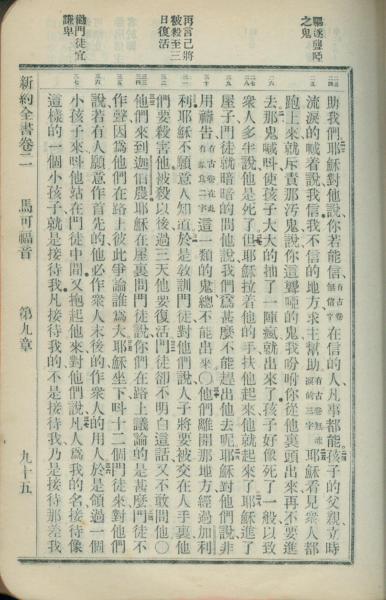 驅逐聾啞之鬼
再言己將被殺至三日復活
勸門徒宜謙卑
助我們耶穌對他說你若能信有古卷無信字在信的人凡事都能孩子的父親立時
流淚的喊着說我信我不信的地方求主幫助有古卷無流淚的三字耶穌看見衆人都
跑上來就斥責那汚鬼說你這聾啞的鬼我吩咐你從他裏頭出來再不要進
去那鬼喊呌使孩子大大的抽了一陣瘋就出來了孩子好像死了一般以致
衆人多半說他是死了但耶穌拉着他的手扶他起來他就起來了耶穌進了
屋子門徒就暗暗的問他說我們爲甚麼不能趕出他去呢耶穌對他們說非
用禱告有古卷在此有禁食二字這一類的鬼總不能出來〇他們離開那地方經過加利
利耶穌不願意人知道於是教訓門徒對他們說人子將要被交在人手裏他
們要殺害他被殺以後過三天他要復活門徒卻不明白這話又不敢問他〇
他們來到迦伯農耶穌在屋裏問門徒說你們在路上議論的是甚麼門徒不
作聲因爲他們在路上彼此爭論誰爲大耶穌坐下呌十二個門徒來對他們
說若有人願意作首先的他必作衆人末後的作衆人的用人於是領過一個
小孩子來呌他站在門徒中間又抱起他來對他們說凡人爲我的名接待像
這樣的一個小孩子就是接待我凡接待我的不是接待我乃是接待那差我
新約全書卷二 馬可福音 第九章 九十五